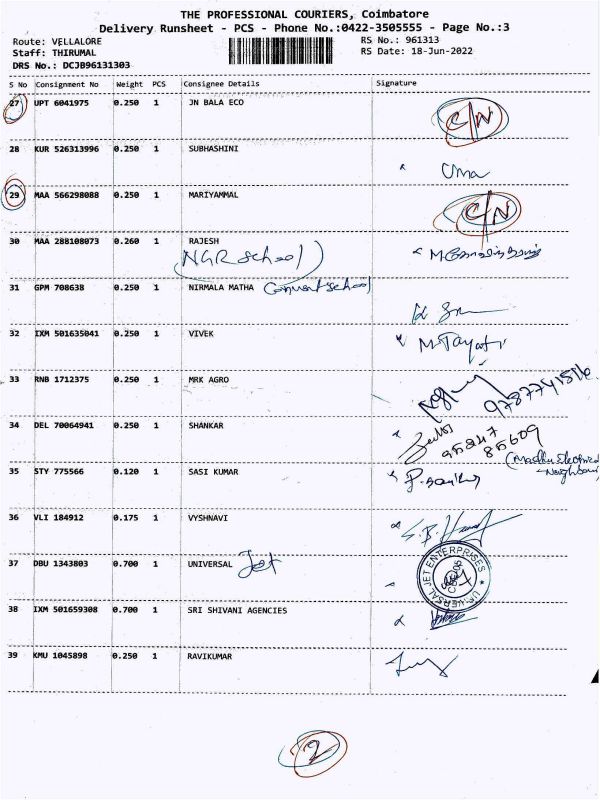 THE PROFESSIONAL COURIERS, Coimbatore
Delivery Runsheet - PCS - Phone No.:0422-3505555 - Page No.:3
Route: VELLALORE RS No.: 961313
Staff: THIRUMAL RS Date: 18-Jun-2022
DRS No.: DCJB96131303
S No Consignment No Weight PCS Consignee Details Signature
27 UPT 6041975 0.250 1 JN BALA ECO C/N
28 KUR 526313996 0.250 1 SUBHASHINI Uma
29 MAA 566298088 0.250 1 MARIYAMMAL C/N
30 MAA 288108073 0.260 1 RAJESH
NGR School
31 GPM 708638 0.250 1 NIRMALA MATHA Convent school
32 IXM 501635041 0.250 1 VIVEK
33 RNB 1712375 0.250 1 MRK AGRO 9787741516
34 DEL 70064941 0.250 1 SHANKAR 95247
85609
35 STY 775566 0.120 1 SASI KUMAR
36 VLI 184912 0.175 1 VYSHNAVI
37 DBU 1343803 0.700 1 UNIVERSAL Jet
UNIVERSAL JET ENTERPRISES
38 IXM 501659308 0.700 1 SRI SHIVANI AGENCIES
39 KMU 1045898 0.250 1 RAVIKUMAR
2